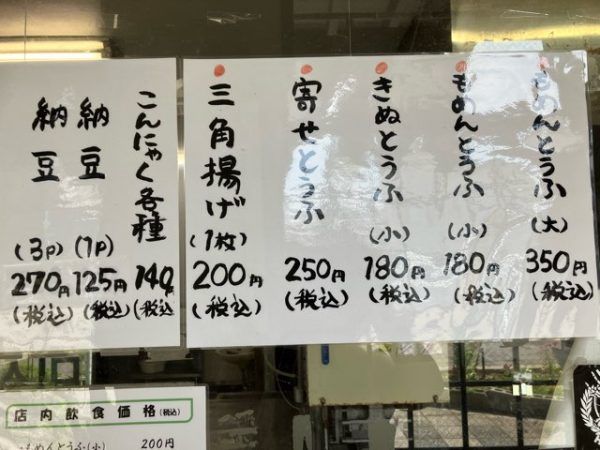 もめんとうふ(大)
350円
(税込)
もめんとうふ(小)
180円
(税込)
きぬとうふ(小)
180円
(税込)
寄せとうふ
250円
(税込)
三角揚げ(1枚)
200円
(税込)
こんにゃく各種
140円
(税込
納豆(1P)
125円
(税込)
納豆(3P)
270円
(税込)
店内飲食価格(税込)
もめんとうふ(小) 200円